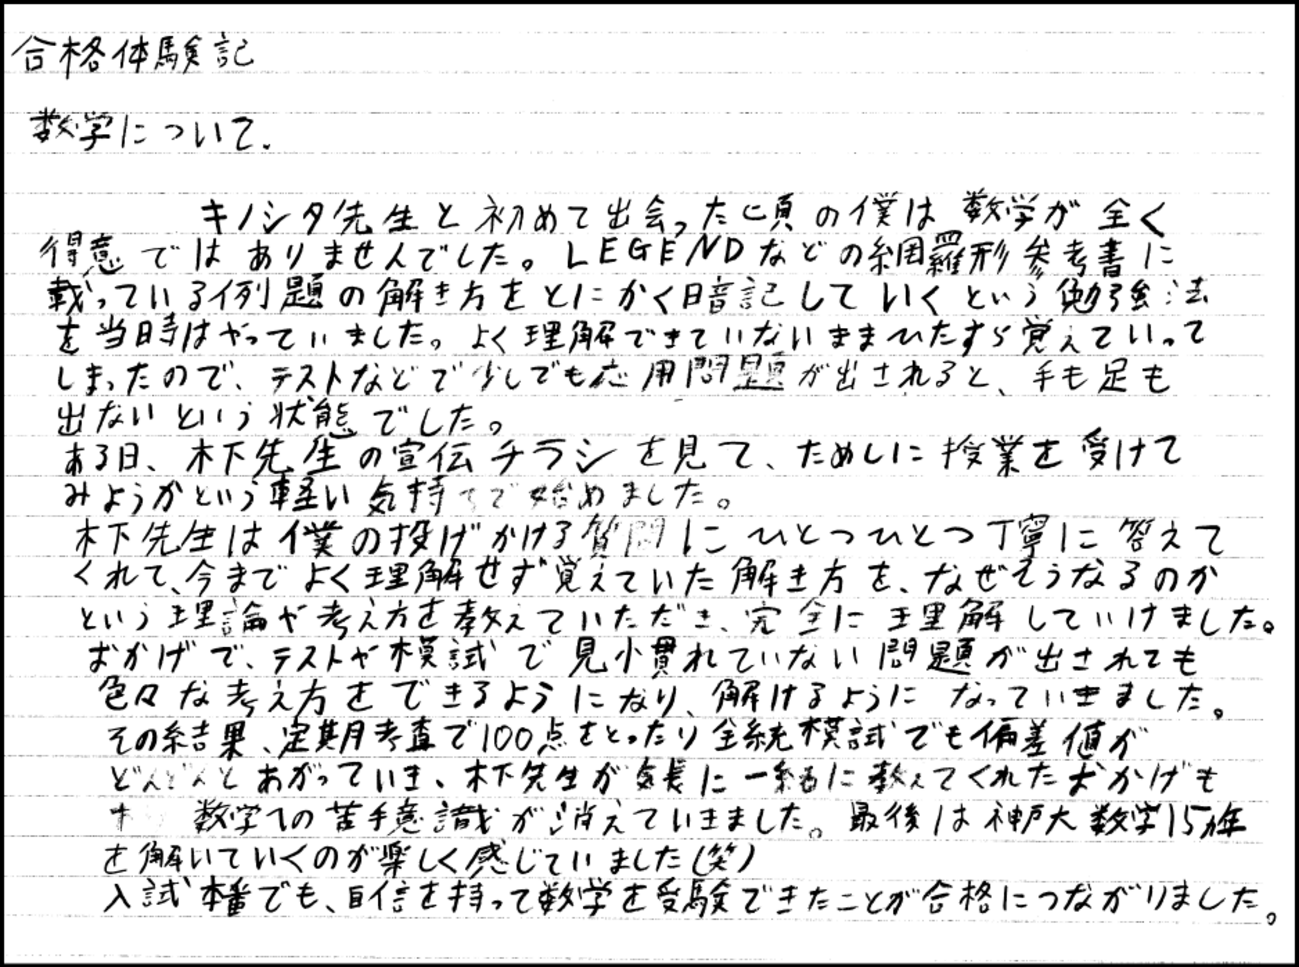 合格体験記
数学について.
キノシタ先生と初めて出会った頃の僕は数学が全く
得意ではありませんでした。LEGENDなどの網羅形参考書に
載っている例題の解き方をとにかく暗記していくという勉強法
を当時はやっていました。よく理解できていないままひたすら覚えていって
しまったので、テストなどで少しでも応用問題が出されると、手も足も
出ないという状態でした。
ある日、木下先生の宣伝チラシを見て、ためしに授業を受けて
みようかという軽い気持ちで始めました。
木下先生は僕の投げかける質問にひとつひとつ丁寧に答えて
くれて、今までよく理解せず覚えていた解き方を、なぜそうなるのか
という理論や考え方を教えていただき、完全に理解していけました。
おかげで、テストや模試で見慣れていない問題が出されても
色々な考え方をできるようになり、解けるようになっていきました。
その結果、定期考査で100点をとったり全統模試でも偏差値が
どんどんとあがっていき、木下先生が気長に一緒に教えてくれたおかげも
数学への苦手意識が消えていきました。最後は神戸大数学15カ年
を解いていくのが楽しく感じていました(笑)
入試本番でも、自信を持って数学を受験できたことが合格につながりました。